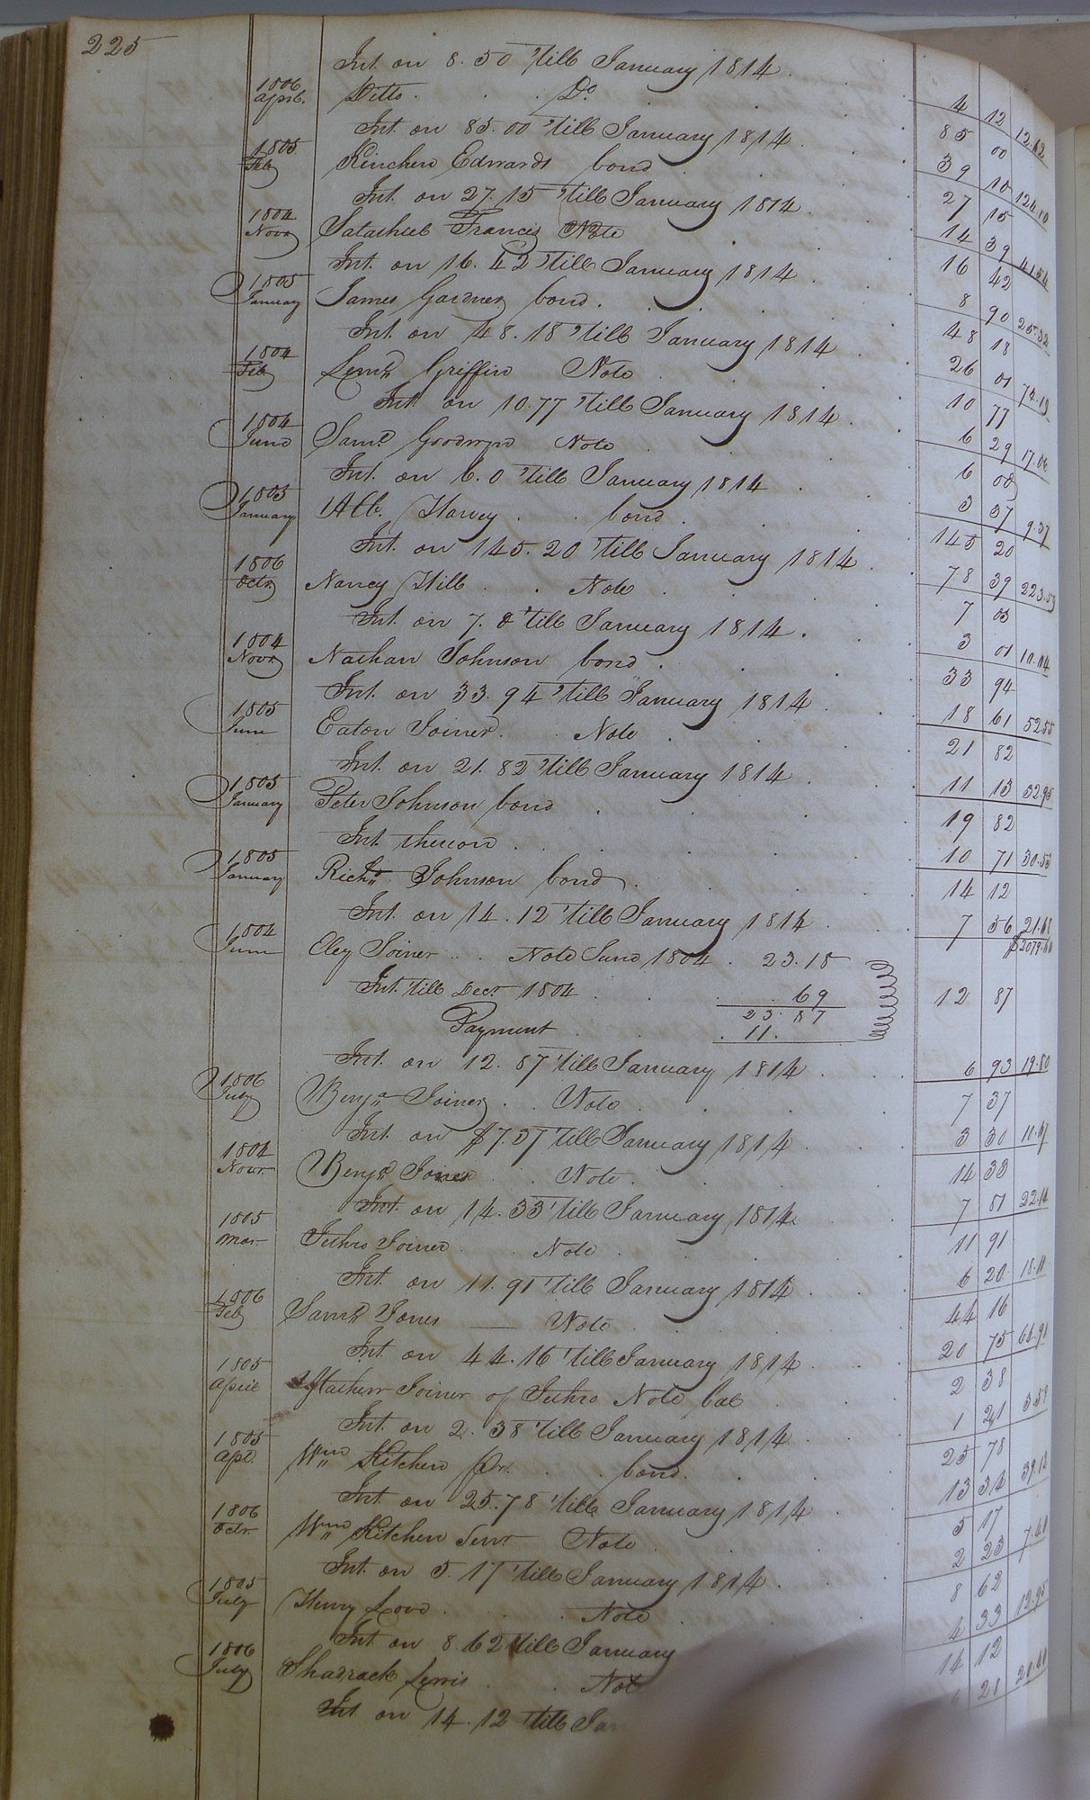 225
Int. on 8.50 'till January 1814 . 4 12 12.62
1806 Aprl. Ditto . . . Do. 85 00
Int. on 85.00 'till January 1814 . 39 10 124.10
1805 Feb Kinchen Edwards bond 27 15
Int. on 27.15 'till January 1814 . 14 39 41.54
1804 Novr Francis Note 16 42
Int. on 16.42 'till January 1814 . 8 90 25.32
1805 January James Gardner bond . 48 18
Int. on 48.18 'till January 1814 . 26 01 74.19
1804 Feb Lem.l Griffin Note 10 77
Int. on 10.77 'till January 1814 . 6 29 17.06
1804 June Sam.l Goodwyn Note 6 00
Int. on 6.0 'till January 1814 . 3 37 9.37
1805 January Harvey . . bond . 145 20
Int. on 145.20 'till January 1814 . 78 39 223.59
1806 Octr Nancy Hill . . Note . 7 03
Int. on 7. 'till January 1814 . 3 01 10.04
1804 Novr Nathan Johnson bond . 33 94
Int. on 33.94 'till January 1814 . 18 61 52.55
1805 June Eaton Joiner . Note . 21 82
Int. on 21.82 'till January 1814 . 11 13 32.95
1805 January Peter Johnson bond . 19 82
Int. thereon . 10 71 30.53
1805 January Richd Johnson bond . 14 12
Int. on 14.12 'till January 1814 . 7 56 21.68
1804 June Eley Joiner . . Note June 1804 . 23.18
Int. till Decr. 1804 . . 69 12 87
23.87
Payment . 11.
Int. on 12.87 'till January 1814 . 6 93 19.80
1806 July Benja Joiner . . Note . 7 37
Int. on $7.37 'till January 1814 . 3 30 10.67
1804 Novr. Benja Jones . Note . 14 33
Int. on 14.33 'till January 1814 7 81 22.14
1805 Mar. Jethro Joiner . Note . 11 91
Int. on 11.91 'till January 1814 . 6 20 18.11
1806 Feb Saml Jones — Note . 44 16
Int. on 44.16 'till January 1814 . 20 75 64.91
1805 April Mathew Joiner of Jethro Note bal 2 38
Int. on 2.38 'till January 1814 . 1 21 3.59
1805 Apl. Wm Kitchen Jr. . . bond . 25 78
Int. on 25.78 'till January 1814 . 13 34 39.12
1806 Octr. Wm Kitchen Senr Note . 5 17
Int. on 5.17 'till January 1814 . 2 23 7.40
1805 July Henry Love . . . Note . 8 62
Int on 8.62 till January 4 33 12.95
1806 July Shadrack Lewis . . Not 14 12
Int on 14.12 till Ja 21